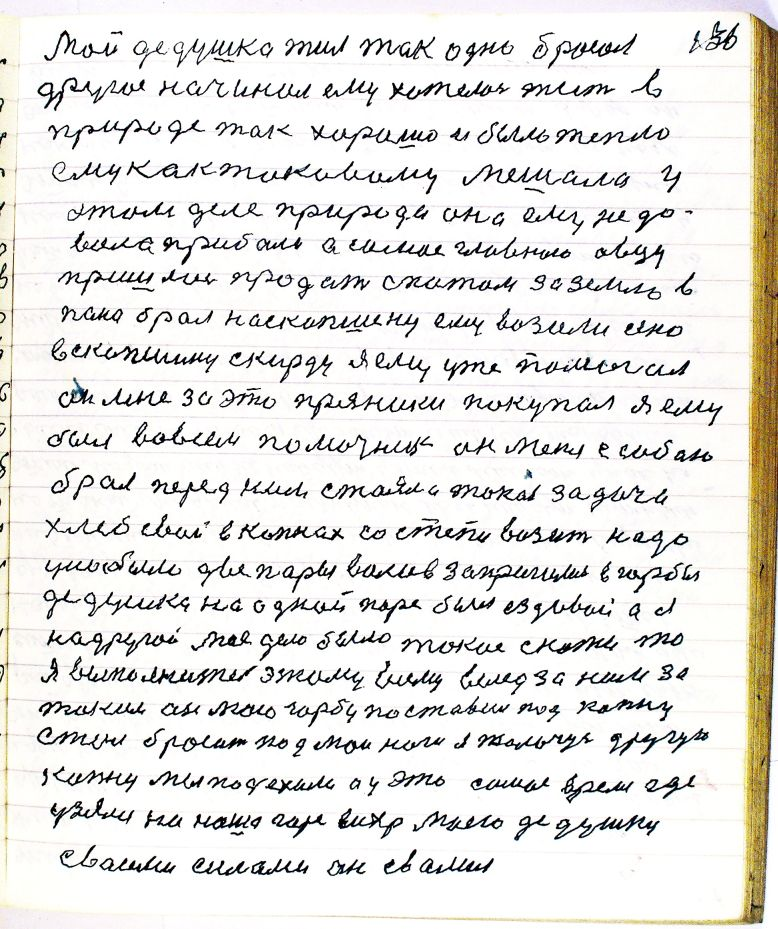 136
Мой дедушка жил так одно бросал
другое начинал ему хотелос жит в
природе так хорошо и было тепло
ему как таковому мешала у
этом деле природа она ему не до-
вала прибаль а самое главною овцу
пришлос продат скотом за землю в
пана брал наскопшену ему возили сено
вскопшину скирду я ему уже помогал
он мне за это пряники покупал я ему
был вовсем помочник он меня с собою
брал перед ним стаяла такая задача
хлеб свой в копнах со степи возит надо
у нас было две пары волов запрягали в гарбы
дедушка на одной паре был ездовой а я
на другой мое дело было такое скажи то
я выполнител этому всему вслед за ним за
таким он мою гарбу поставил под копну
стал бросат под мои ноги я толочуя другую
копну мы подехали а у это самое время где
узялы на наша горе вихр моего дедушку
своими силами он свалил